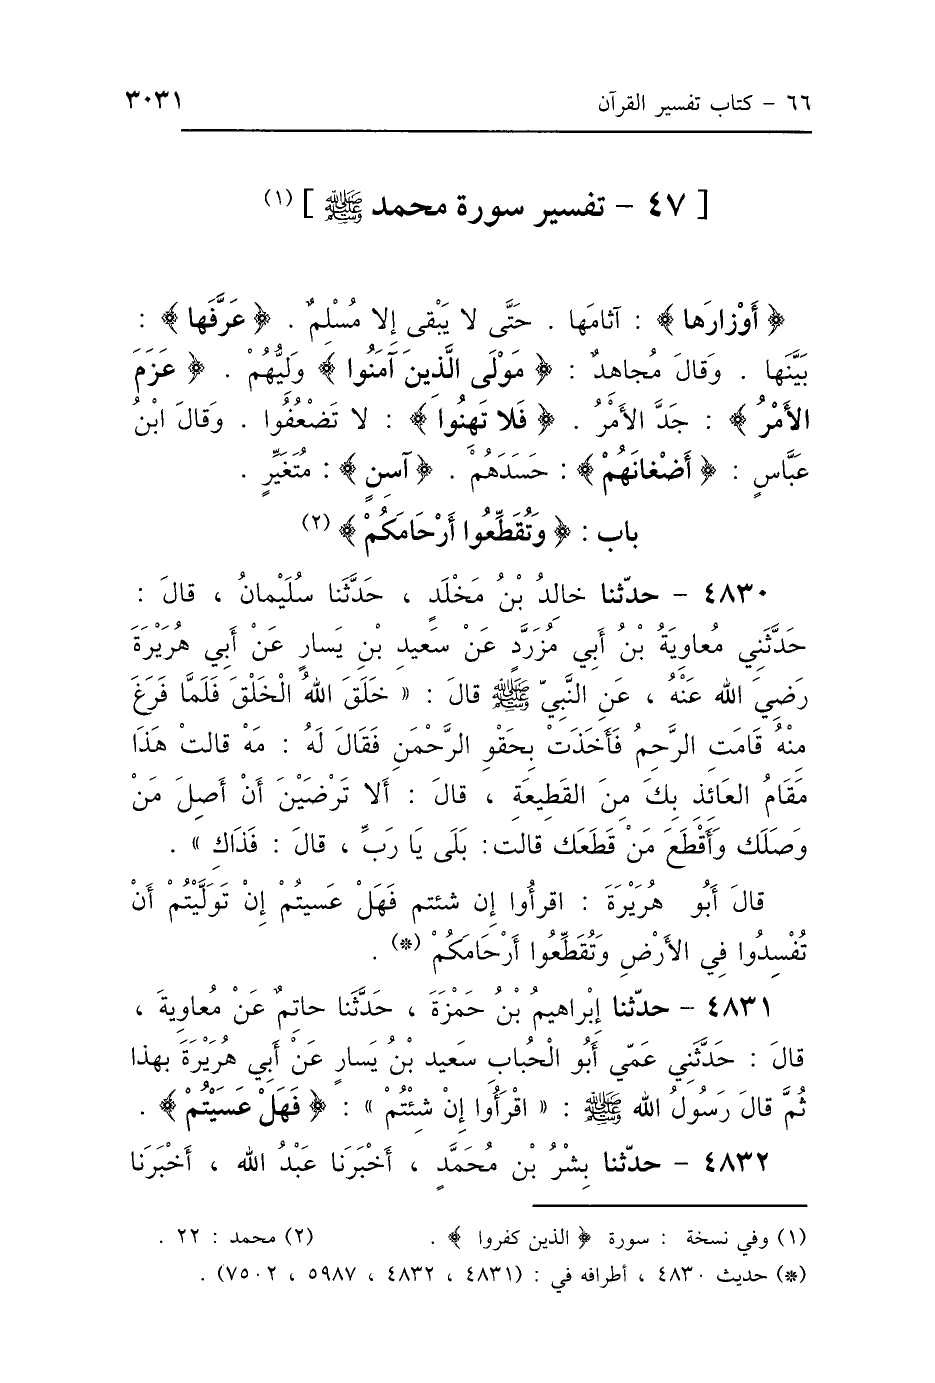 ٦٦ - كتاب تفسير القرآن ٣٠٣١
[ ٤٧ - تفسير سورة محمد ﷺ ] (١)
﴿ أَوْزارَها ﴾ : آثامَها . حَتَّى لا يَبْقى إلا مُسْلِمٌ . ﴿ عَرَّفَها ﴾ :
بَيَّنَها . وَقالَ مُجاهِدٌ : ﴿ مَوْلَى الَّذِينَ آمَنُوا ﴾ وَلِيُّهُمْ . ﴿ عَزَمَ
الأَمْرُ ﴾ : جَدَّ الأَمْرُ . ﴿ فَلا تَهِنُوا ﴾ : لا تَضْعُفُوا . وَقالَ ابْنُ
عَبَّاسٍ : ﴿ أَضْغانَهُمْ ﴾ : حَسَدَهُمْ . ﴿ آسِنٍ ﴾ : مُتَغَيِّرٍ .
باب : ﴿ وَتُقَطِّعُوا أَرْحَامَكُمْ ﴾ (٢)
٤٨٣٠ - حدّثنا خالِدُ بْنُ مَخْلَدٍ ، حَدَّثَنا سُلَيْمانُ ، قالَ :
حَدَّثَنِي مُعاوِيَةُ بْنُ أَبي مُزَرَّدٍ عَنْ سَعيدِ بْنِ يَسارٍ عَنْ أَبي هُرَيْرَةَ
رَضِيَ الله عَنْهُ ، عَنِ النَّبيّ ﷺ قالَ : « خَلَقَ اللهُ الْخَلْقَ فَلَمَّا فَرَغَ
مِنْهُ قَامَتِ الرَّحِمُ فَأَخَذَتْ بِحَقْوِ الرَّحْمَنِ فَقَالَ لَهُ : مَهْ قالتْ هَذَا
مَقَامُ العَائِذِ بِكَ مِنَ القَطِيعَةِ ، قالَ : أَلا تَرْضَيْنَ أَنْ أَصِلَ مَنْ
وَصَلَكِ وَأَقْطَعَ مَنْ قَطَعَكِ قالت : بَلَى يَا رَبِّ ، قالَ : فَذَاكِ » .
قالَ أَبُو هُرَيْرَةَ : اقرأُوا إِن شئتم فَهَلْ عَسيتُمْ إِنْ تَوَلَّيْتُمْ أَنْ
تُفْسِدُوا فِي الأَرْضِ وَتُقَطِّعُوا أَرْحَامَكُمْ (*) .
٤٨٣١ - حدّثنا إِبْراهيمُ بْنُ حَمْزَةَ ، حَدَّثَنا حاتِمٌ عَنْ مُعاويةَ ،
قالَ : حَدَّثَنِي عَمّي أَبُو الْحُبابِ سَعيدِ بْنُ يَسارٍ عَنْ أَبي هُرَيْرَةَ بِهذا
ثُمَّ قالَ رَسُولُ الله ﷺ : « اقْرَأُوا إِنْ شِئْتُمْ » : ﴿ فَهَلْ عَسَيْتُمْ ﴾ .
٤٨٣٢ - حدّثنا بِشْرُ بْنِ مُحَمَّدٍ ، أَخْبَرَنا عَبْدُ الله ، أَخْبَرَنا
(١) وفي نسخة : سورة ﴿ الذين كفروا ﴾ . (٢) محمد : ٢٢ .
(*) حديث ٤٨٣٠ ، أطرافه في : (٤٨٣١ ، ٤٨٣٢ ، ٥٩٨٧ ، ٧٥٠٢) .